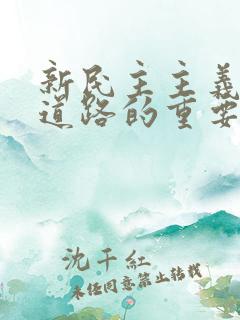 新民主主義
道路的重要
沈千紅
未经同意禁止转载